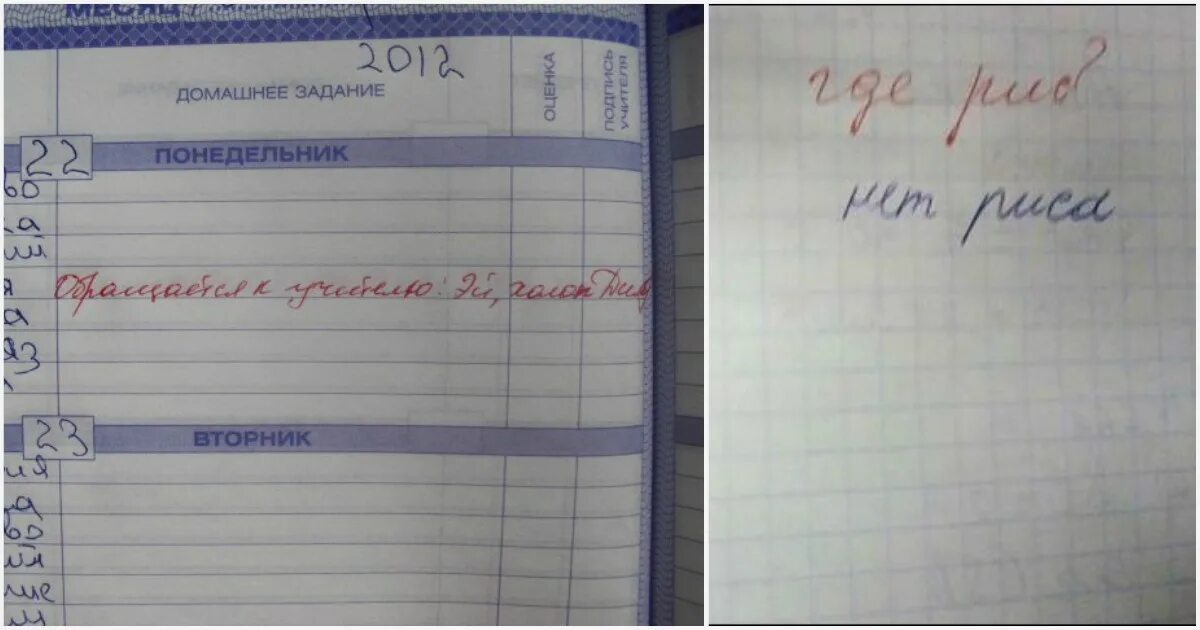 МЕСЯЦ
2012
ДОМАШНЕЕ ЗАДАНИЕ
ОЦЕНКА
ПОДПИСЬ УЧИТЕЛЯ
22
ПОНЕДЕЛЬНИК
Обращается к учителю: Эй, холоп
23
ВТОРНИК
где рис?
нет риса